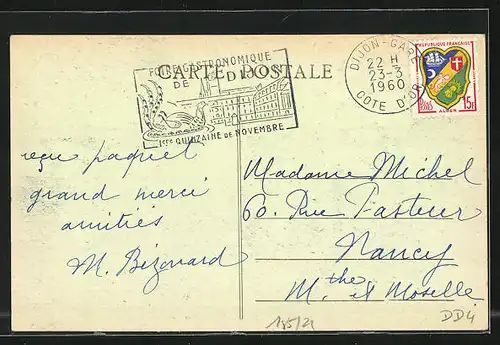 FOIRE GASTRONOMIQUE
DE DIJON
1ERE QUINZAINE DE NOVEMBRE
CARTE POSTALE
DIJON-GARE
22 H
23-3
1960
COTE D'OR
REPUBLIQUE FRANÇAISE
POSTES
15F
ALGER
reçu paquet
grand merci
amitiés
M. Bizouard
Madame Michel
60. Rue Pasteur
Nancy
M.the et Moselle
185/21
DD4